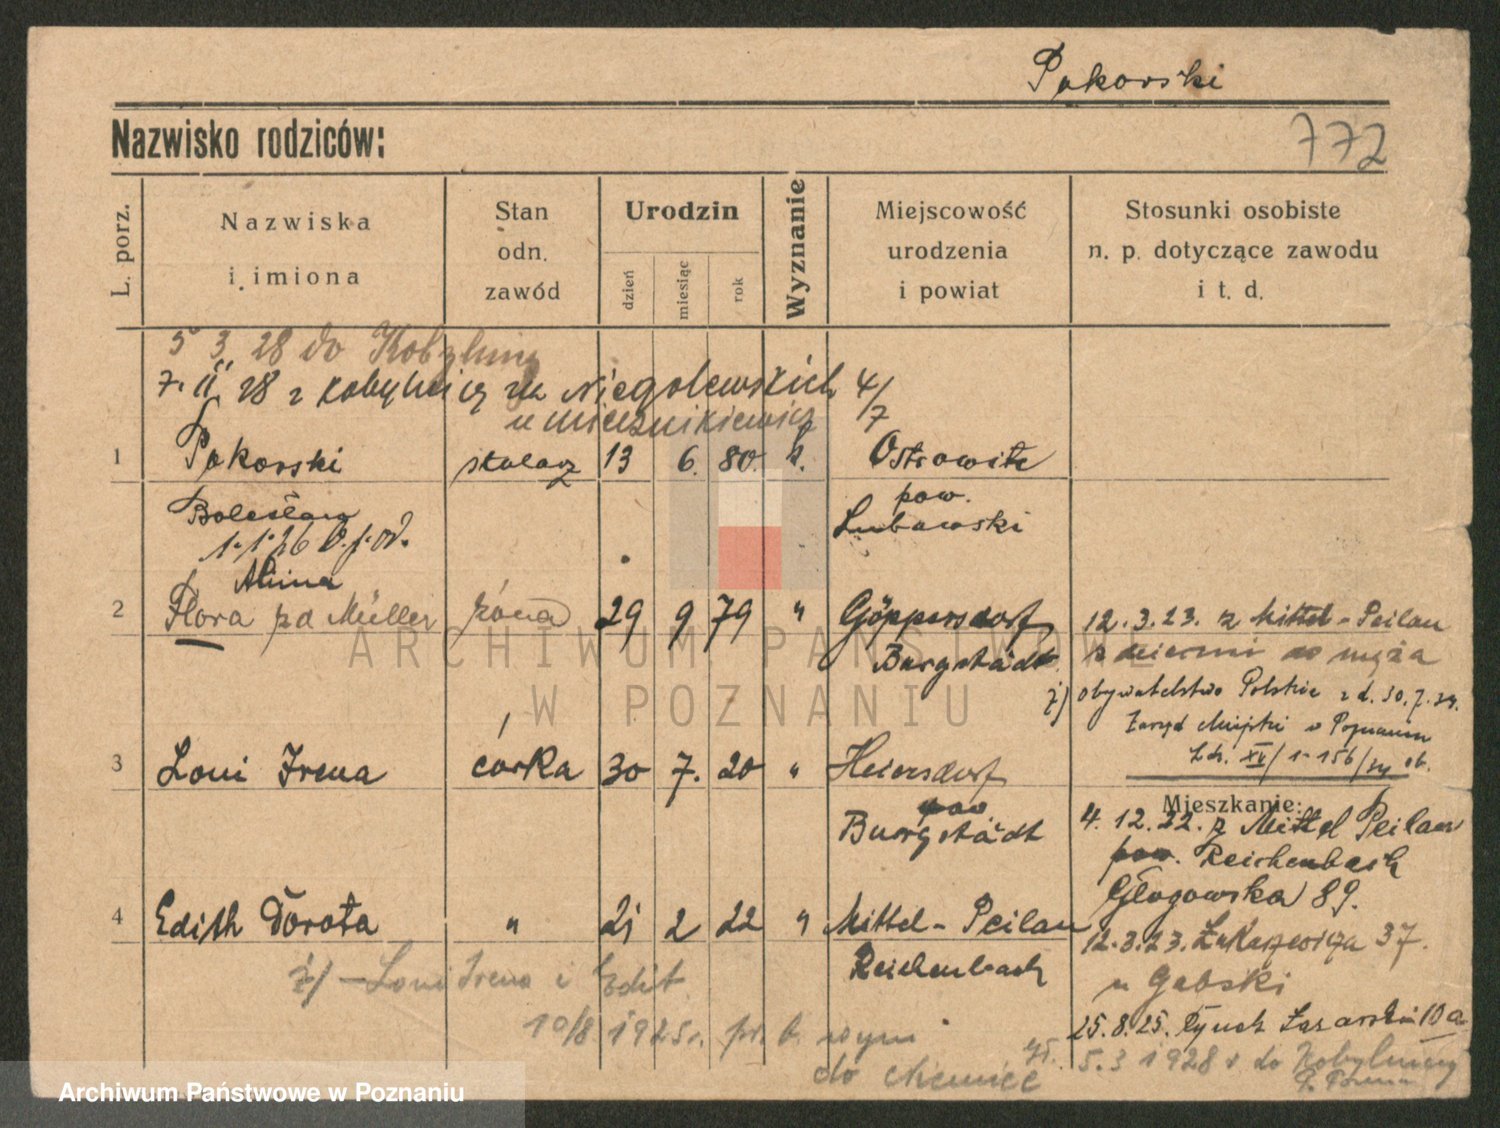 Pokorski
772
Nazwisko rodziców:
L. porz.
Nazwiska
i imiona
Stan
odn.
zawód
Urodzin
dzień
miesiąc
rok
Wyznanie
Miejscowość
urodzenia
i powiat
Stosunki osobiste
n. p. dotyczące zawodu
i t. d.
5 3 28 do Kobylnicy
7. II. 28 z Kobylnicy na Niegolewskich 4/7
u Mieznikiewicz
1 Pokorski stolarz 13 6. 80. k. Ostrowite
Bolesław pow.
Lubawski
1.1.26
Alina
2 Flora zd Müller żona 29 9 79 " Göppersdorf 12.3.23. z Mittel-Peilau
Burgstädt z dziećmi do męża
ż) obywatelstwo Polskie z d. 30.7.24.
Zarząd Miejski w Poznaniu
L.dz. XI/1-156/24 ob.
3 Loni Irena córka 30 7. 20 " Heiersdorf
pow.
Burgstädt
Mieszkanie:
4. 12. 22. z Mittel Peilau
pow. Reichenbach
Głogowska 89.
4 Edith Dorota " 21 2 22 " Mittel-Peilau
Reichenbach
12.3.23. Łukaszewicza 37.
u Gabski
ż) - Loni Irena i Edit
25.8.25. Rynek Łazarski 10a
10/8 1925r. pr. b. wym
do Chemnice
5.3 1928 r do Kobylnicy
p. Poznań
ARCHIWUM PAŃSTWOWE
W POZNANIU
Archiwum Państwowe w Poznaniu